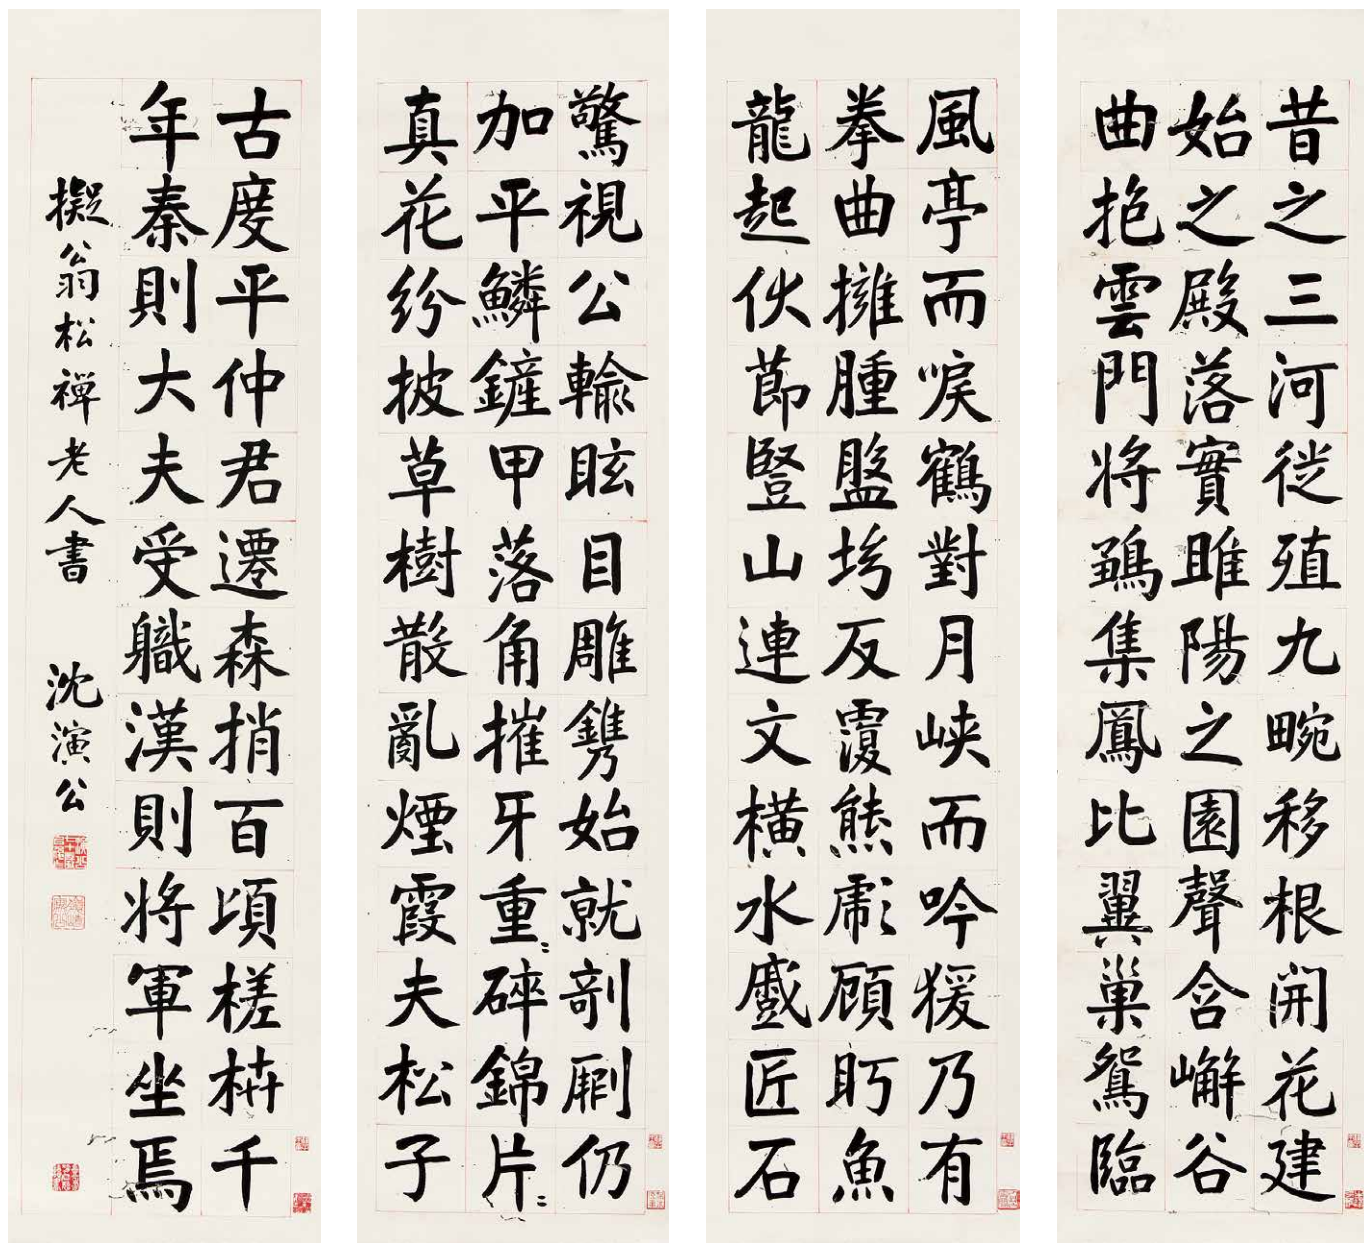 昔之三河徙殖九畹移根開花建
始之殿落實睢陽之園聲含嶰谷
曲抱雲門將鶵集鳳比翼巢鴛臨
風亭而唳鶴對月峽而吟猨乃有
拳曲擁腫盤坳反覆熊彪顧眄魚
龍起伏節豎山連文橫水蹙匠石
驚視公輸眩目雕鐫始就剞劂仍
加平鱗鏟甲落角摧牙重〻碎錦片〻
真花紛披草樹散亂煙霞夫松子
古度平仲君遷森捎百頃槎枿千
年秦則大夫受職漢則將軍坐焉
擬翁松禪老人書 沈演公